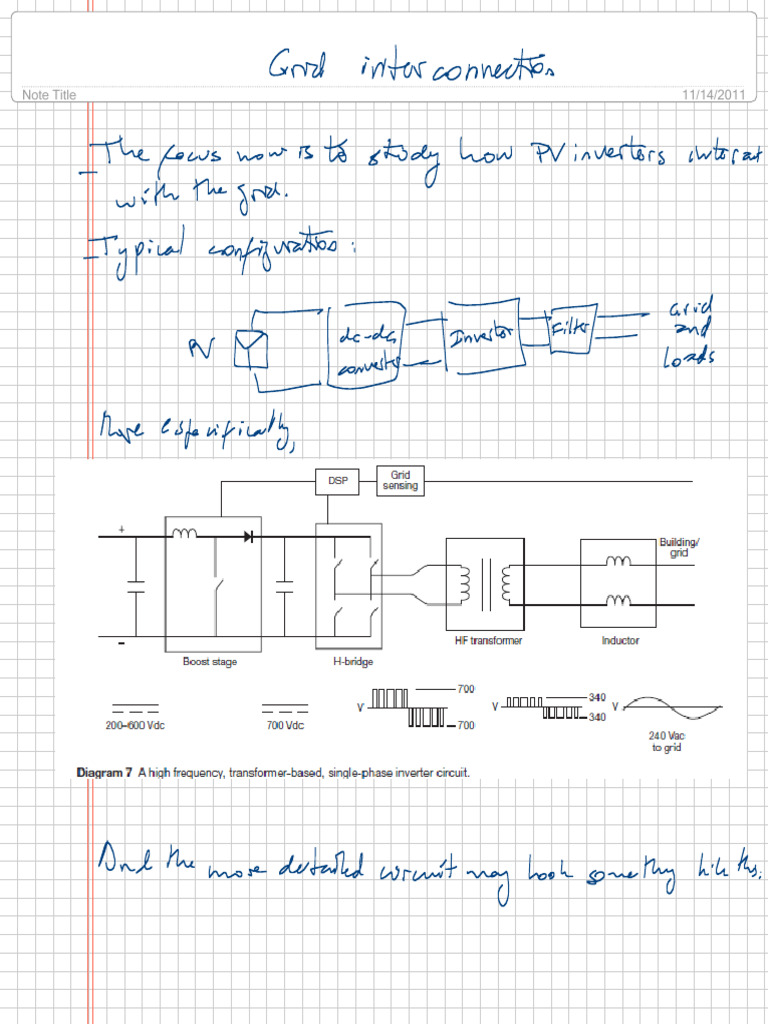 Grid interconnection
Note Title
11/14/2011
- The focus now is to study how PV inverters interact
with the grid.
- Typical configuration:
PV
dc-dc
converter
Inverter
Filter
Grid
and
Loads
More especifically,
DSP
Grid
sensing
+
-
Building/
grid
Boost stage
H-bridge
HF transformer
Inductor
200–600 Vdc
700 Vdc
V
700
700
V
340
340
V
240 Vac
to grid
Diagram 7 A high frequency, transformer-based, single-phase inverter circuit.
And the more detailed circuit may look something like this: